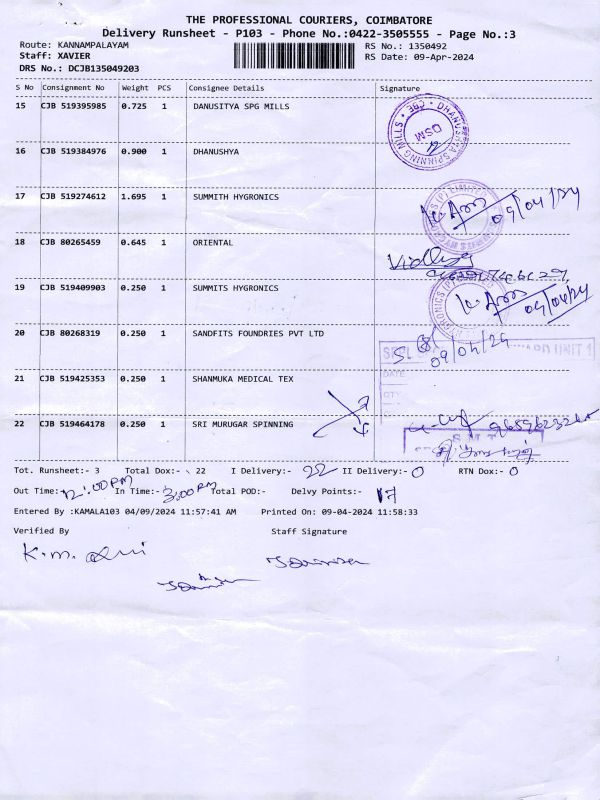 THE PROFESSIONAL COURIERS, COIMBATORE
Delivery Runsheet - P103 - Phone No.:0422-3505555 - Page No.:3
Route: KANNAMPALAYAM RS No.: 1350492
Staff: XAVIER RS Date: 09-Apr-2024
DRS No.: DCJB135049203
S No Consignment No Weight PCS Consignee Details Signature
15 CJB 519395985 0.725 1 DANUSITYA SPG MILLS
DHANUSHYA SPINNING MILLS * CBE *
DSM
16 CJB 519384976 0.900 1 DHANUSHYA
17 CJB 519274612 1.695 1 SUMMITH HYGRONICS
09/04/24
18 CJB 80265459 0.645 1 ORIENTAL
19 CJB 519409903 0.250 1 SUMMITS HYGRONICS
09/04/24
20 CJB 80268319 0.250 1 SANDFITS FOUNDRIES PVT LTD
09/04/24
UNIT 1
DATE
QTY
21 CJB 519425353 0.250 1 SHANMUKA MEDICAL TEX
22 CJB 519464178 0.250 1 SRI MURUGAR SPINNING
Tot. Runsheet:- 3 Total Dox:- 22 I Delivery:- 22 II Delivery:- 0 RTN Dox:- 0
Out Time: 12:00PM In Time:- 3:00PM Total POD:- Delvy Points:- 17
Entered By :KAMALA103 04/09/2024 11:57:41 AM Printed On: 09-04-2024 11:58:33
Verified By Staff Signature
K.m.